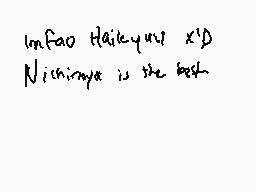 lmfao Haikyuu x'D
Nichinoya is the best